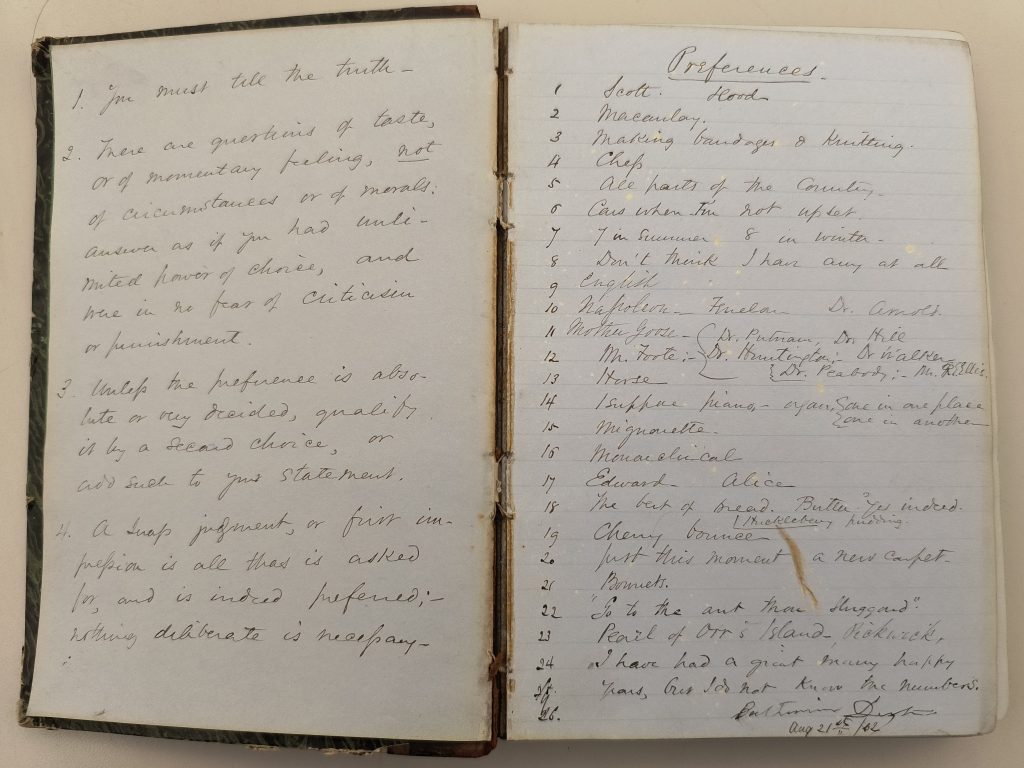 1. You must tell the truth -
2. There are questions of taste,
or of momentary feeling, not
of circumstances or of morals:
answer as if you had unli-
mited power of choice, and
were in no fear of criticism
or punishment.
3. Unless the preference is abso-
lute or very decided, qualify
it by a second choice, or
add such to your statement.
4. A snap judgment, or first im-
pression is all that is asked
for, and is indeed preferred;-
nothing deliberate is necessary-
Preferences.
1 Scott. Hood
2 Macaulay.
3 Making bandages & Knitting.
4 Chess
5 All parts of the Country.
6 Cars when I'm not upset.
7 7 in summer 8 in winter -
8 Don't think I have any at all
9 English
10 Napoleon - Fenelon Dr. Arnold.
11 Mother Goose - Dr. Putnam, Dr. Hill
12 Mr. Foote:- Dr. Huntington:- Dr Walker
Dr. Peabody:- Mr. Ellis.
13 Horse
14 I suppose piano,- organ, one in one place
one in another
15 Mignonette.
16 Monarchical
17 Edward - Alice
18 The best of bread. Butter "Yes indeed.
Huckleberry pudding.
19 Cherry bounce
20 Just this moment a new carpet.
21 Bonnets.
22 "Go to the ant thou sluggard".
23 Pearl of Orr's Island, Pickwick.
24 I have had a great many happy
25. years, but I do not know the numbers.
26.
Aug 21st /62